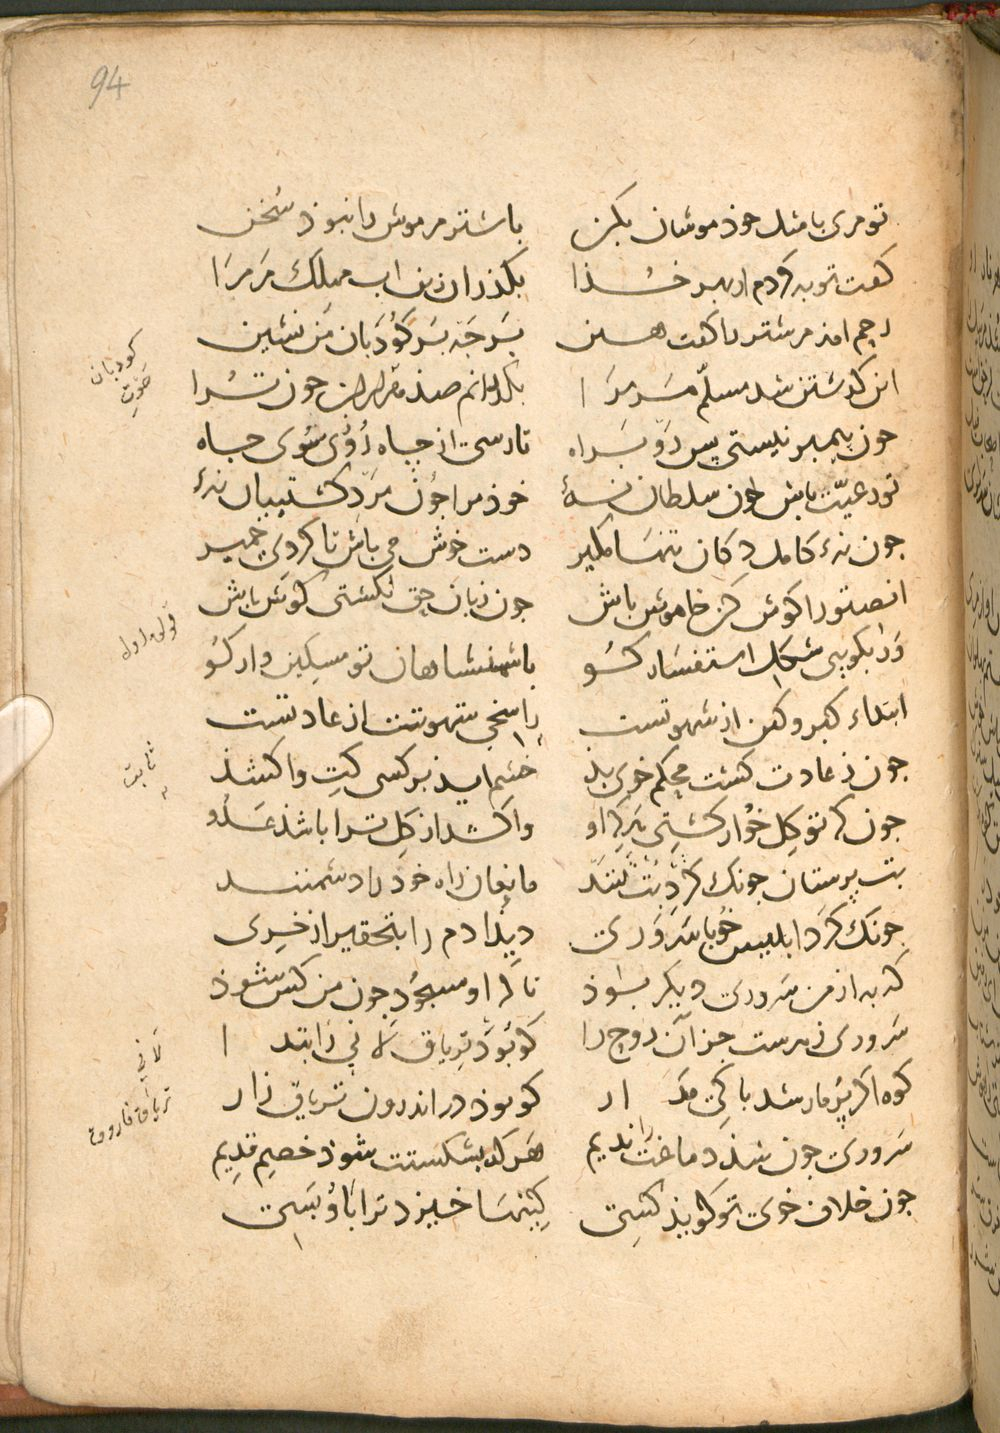 94
تو مری با مثل خود موشان بکن باشتر مر موش را نبوذ سخن
کفت توبه کردم از بهر خذا بکذران زین اب مهلک مر مرا
رحم امذ مر شتر را کفت هین برجه بر کوذبان من نشین
این کذشتن شد مسلم مر مرا بکذرانم صذ هزاران جون ترا
جون پیمبر نیستی پس رو براه تا رسی از چاه روزی سوی جاه
تو رعیت باش جون سلطان نهٔ خوذ مران جون مرد کشتیبان نهٔ
جون نهٔ کامل دکان تنها مکیر دست خوش می باش تا کردی خمیر
انصتوا را کوش کن خاموش باش جون زبان حق نکشتی کوش باش
ور بکویی شکل استفسار کو باشهنشاهان تو مسکین وار کو
ابتداء کبر و کین از شهوتست راسخی شهوتت از عادتست
جون ز عادت کشت محکم خوی بذ خشم ایذ بر کسی کت واکشذ
جون که تو کل خوار کشتی هر که او واکشد از کل ترا باشذ عدو
بت پرستان جونک کرد بت تنند مانعان راه خوذ را دشمنند
جونک کرد ابلیس خو با سروری دیذ ادم را بتحقیر از خری
که به از من سروری دیکر بوذ تا که او مسجود جون من کس شوذ
سروری زهرست جز آن روح را کو بوذ تریاق لانی ز ابتدا
کوه اکر پر مار شد باکی مدار کو بوذ در اندرون تریاق زار
سروری جون شذ دماغت را ندیم هر که بشکستت شوذ خصم قدیم
جون خلاف خوی تو کویذ کسی کینها خیزد ترا با او بسی
کوذبان
قوله اول
ثابت
لانی
تریاق فاروق